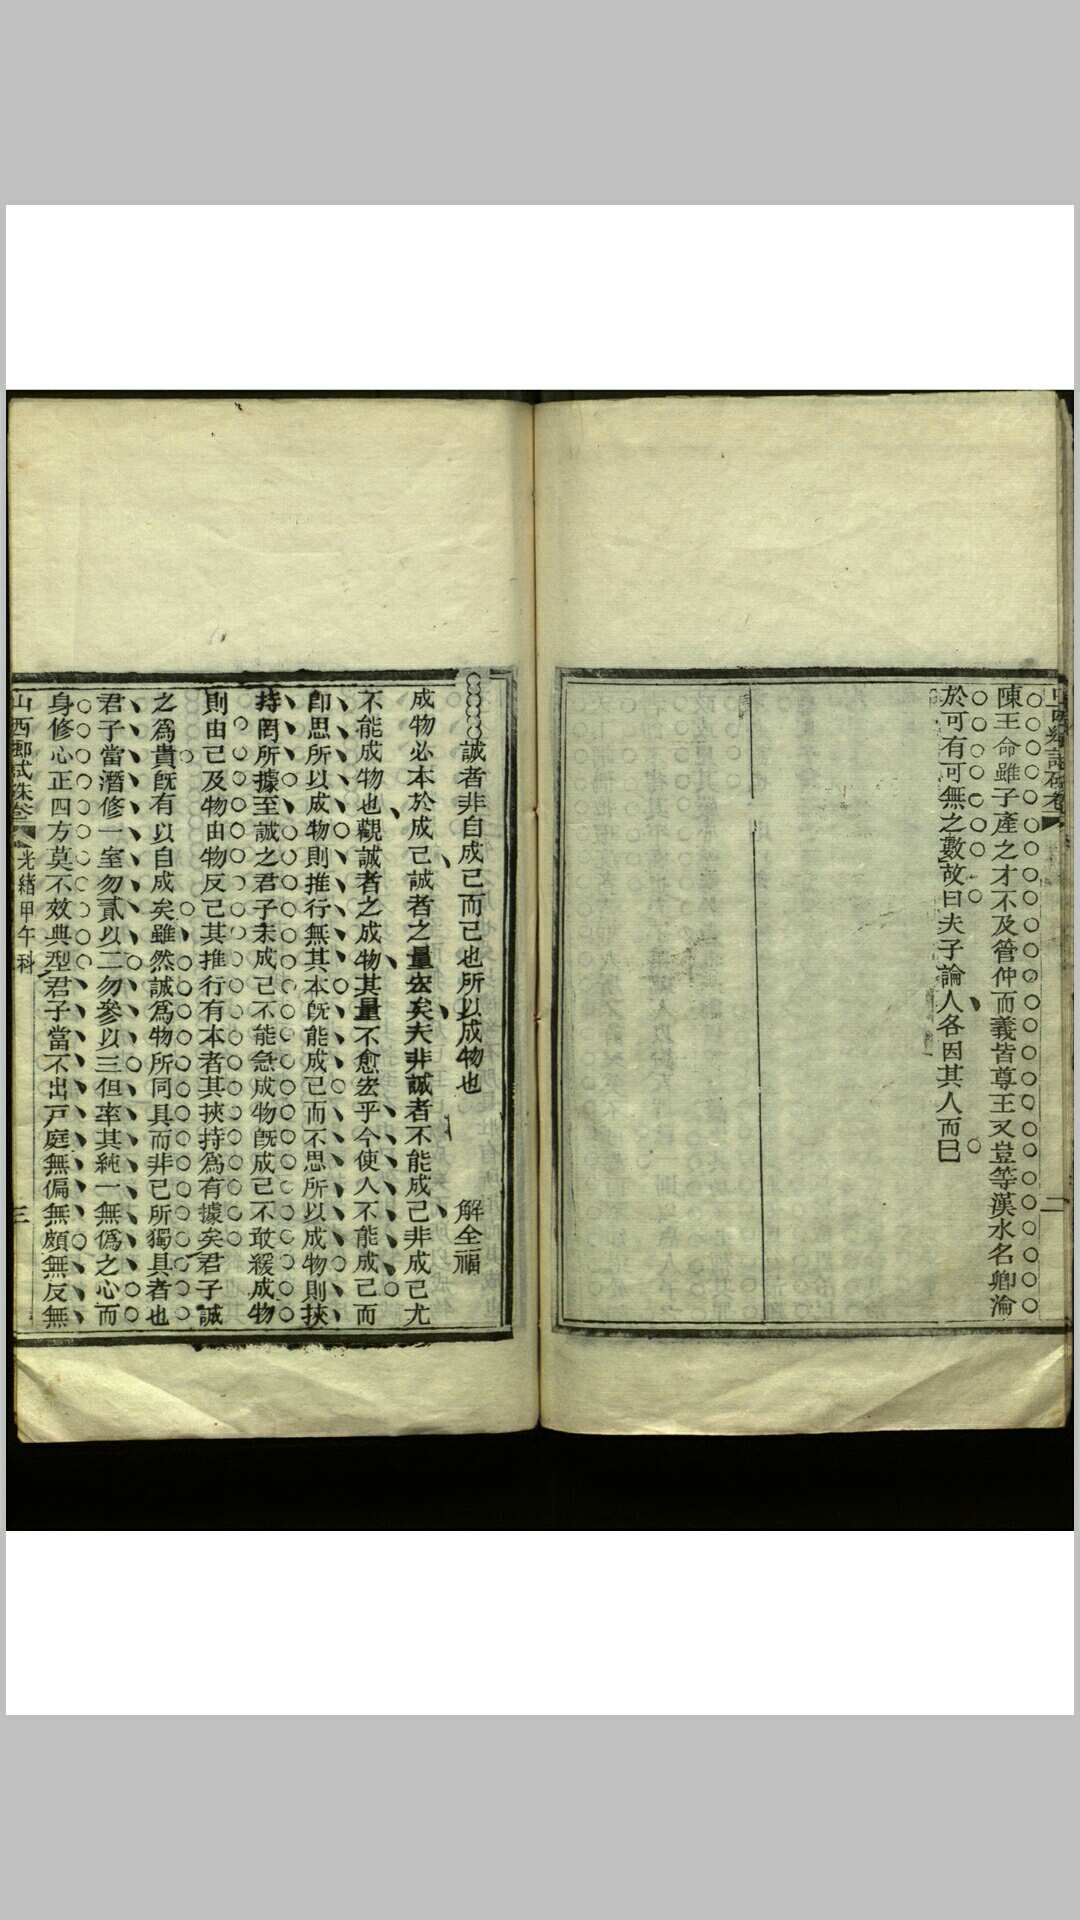 陳王命雖子產之才不及管仲而義皆尊王又豈等漢水名卿淪
於可有可無之數故曰夫子論人各因其人而已
二
誠者非自成己而已也所以成物也　解全福
成物必本於成己誠者之量宏矣夫非誠者不能成己非成己尤
不能成物也觀誠者之成物其量不愈宏乎今使人不能成己而
卽思所以成物則推行無其本旣能成己而不思所以成物則挾
持罔所據至誠之君子未成己不能急成物旣成己不敢緩成物
則由己及物由物反己其推行有本者其挾持爲有據矣君子誠
之爲貴旣有以自成矣雖然誠爲物所同具而非己所獨具者也
君子當潛修一室勿貳以二勿參以三但率其純一無僞之心而
身修心正四方莫不效典型君子當不出戸庭無偏無頗無反無
山西鄉試硃卷　光緒甲午科　三